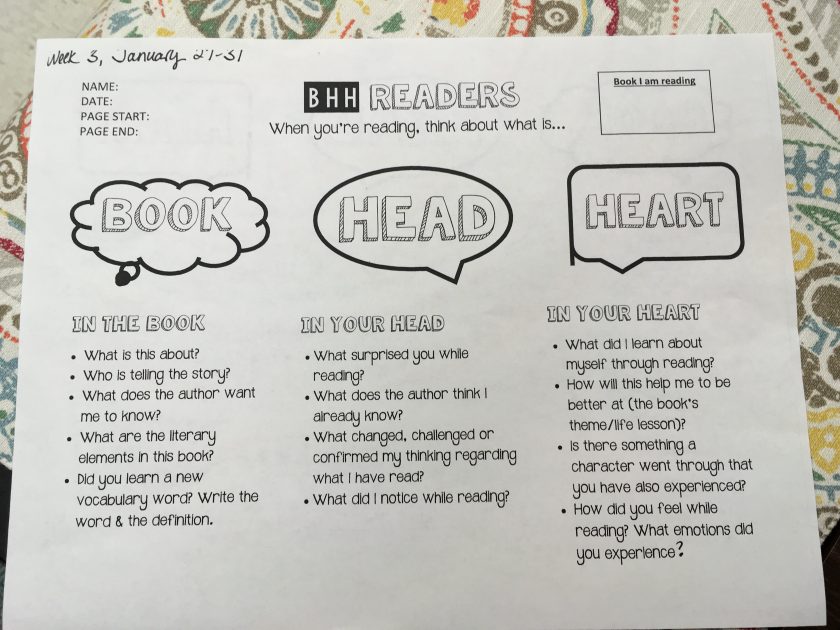 Week 3, January 27-31
NAME:
DATE:
PAGE START:
PAGE END:
BHH READERS
When you're reading, think about what is...
Book I am reading
BOOK
HEAD
HEART
IN THE BOOK
• What is this about?
• Who is telling the story?
• What does the author want
me to know?
• What are the literary
elements in this book?
• Did you learn a new
vocabulary word? Write the
word & the definition.
IN YOUR HEAD
• What surprised you while
reading?
• What does the author think I
already know?
• What changed, challenged or
confirmed my thinking regarding
what I have read?
• What did I notice while reading?
IN YOUR HEART
• What did I learn about
myself through reading?
• How will this help me to be
better at (the book's
theme/life lesson)?
• Is there something a
character went through that
you have also experienced?
• How did you feel while
reading? What emotions did
you experience?